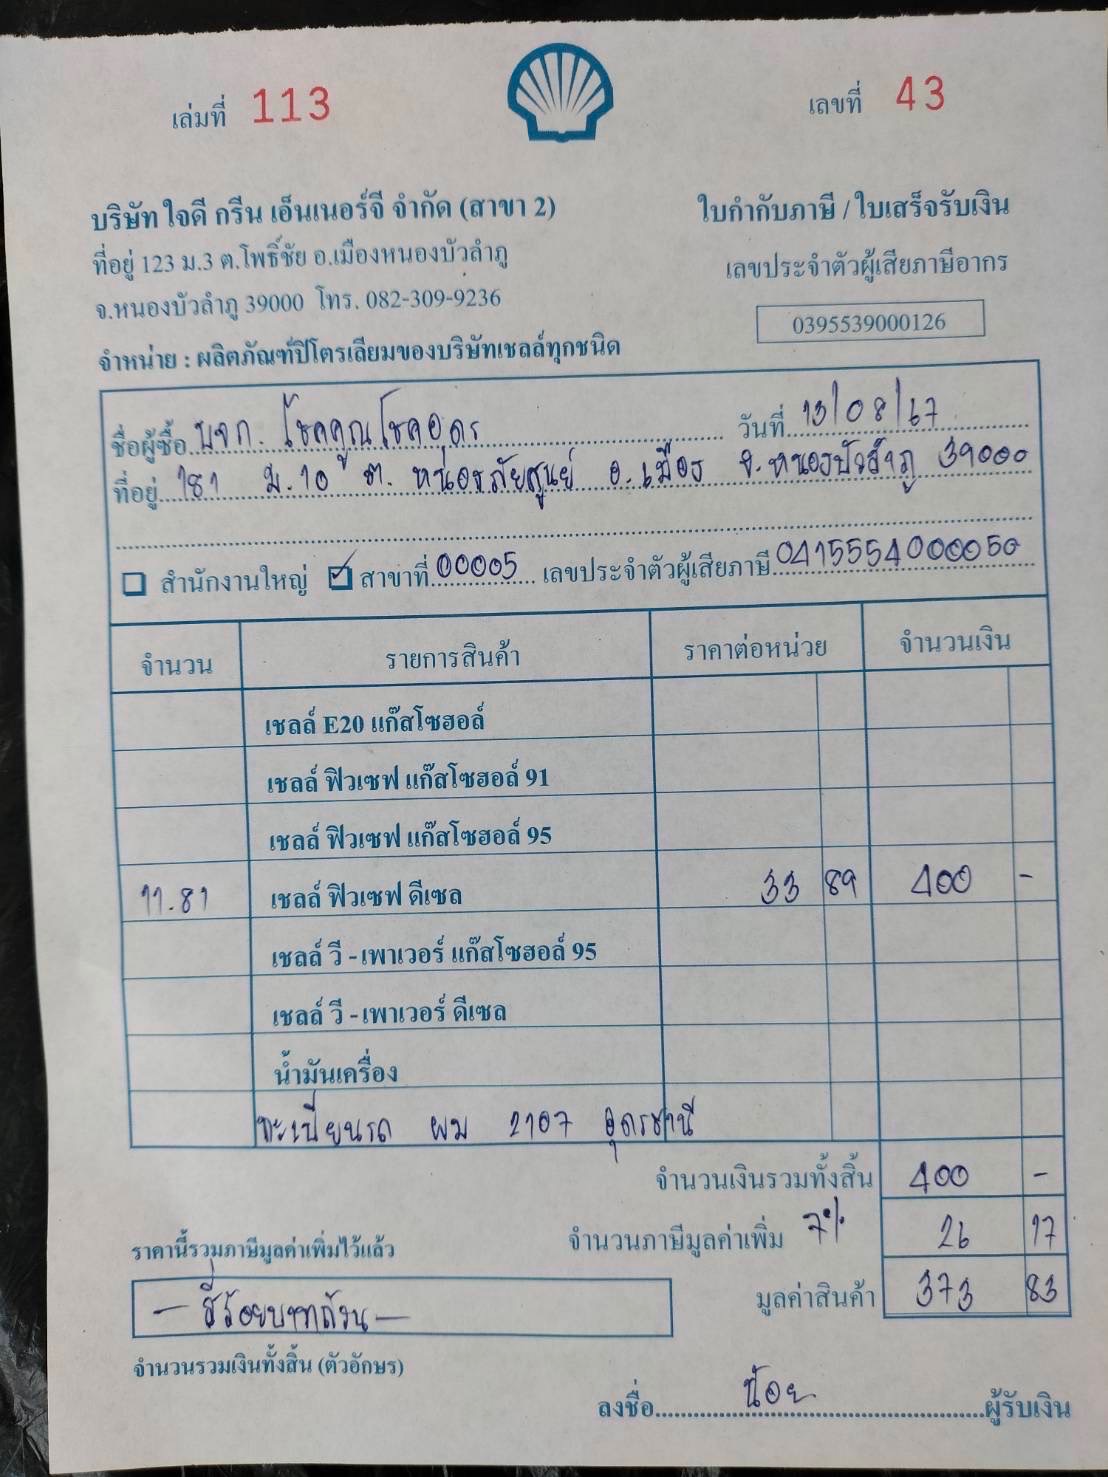 เล่มที่ 113
เลขที่ 43
บริษัท ใจดี กรีน เอ็นเนอร์จี จำกัด (สาขา 2)
ใบกำกับภาษี / ใบเสร็จรับเงิน
ที่อยู่ 123 ม.3 ต.โพธิ์ชัย อ.เมืองหนองบัวลำภู
เลขประจำตัวผู้เสียภาษีอากร
จ.หนองบัวลำภู 39000 โทร. 082-309-9236
0395539000126
จำหน่าย : ผลิตภัณฑ์ปิโตรเลียมของบริษัทเชลล์ทุกชนิด
ชื่อผู้ซื้อ บจก. โชคคูณโชคอุดร วันที่ 13/08/67
ที่อยู่ 181 ม.10 ต. หนองภัยศูนย์ อ.เมือง จ.หนองบัวลำภู 39000
สำนักงานใหญ่ สาขาที่ 00005 เลขประจำตัวผู้เสียภาษี 0415554000050
จำนวน รายการสินค้า ราคาต่อหน่วย จำนวนเงิน
เชลล์ E20 แก๊สโซฮอล์
เชลล์ ฟิวเซฟ แก๊สโซฮอล์ 91
เชลล์ ฟิวเซฟ แก๊สโซฮอล์ 95
11.81 เชลล์ ฟิวเซฟ ดีเซล 33 89 400 -
เชลล์ วี - เพาเวอร์ แก๊สโซฮอล์ 95
เชลล์ วี - เพาเวอร์ ดีเซล
น้ำมันเครื่อง
ทะเบียนรถ ผม 2107 อุดรธานี
จำนวนเงินรวมทั้งสิ้น 400 -
ราคานี้รวมภาษีมูลค่าเพิ่มไว้แล้ว
จำนวนภาษีมูลค่าเพิ่ม 7% 26 17
- สี่ร้อยบาทถ้วน -
มูลค่าสินค้า 373 83
จำนวนรวมเงินทั้งสิ้น (ตัวอักษร)
ลงชื่อ น้อย ผู้รับเงิน